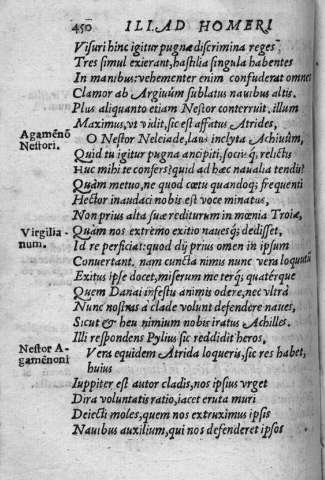 450 ILIAD HOMERI
Visuri hinc igitur pugnæ discrimina reges
Tres simul exierant, hastilia singula habentes
In manibus: vehementer enim confuderat omnes
Clamor ab Argiuûm sublatus nauibus altis.
Plus aliquanto etiam Nestor conterruit, illum
Maximus, vt vidit, sic est affatus Atrides,
Agamēnō
Nestori.
O Nestor Neleiade, laus inclyta Achiuûm,
Quid tu igitur pugna ancipiti, socijsq́; relictis
Huc mihi te confers? quid ad hæc naualia tendis?
Quàm metuo, ne quod cœtu quondoq́; frequenti
Hector inaudaci nobis est voce minatus,
Non prius alta suæ rediturum in mœnia Troiæ,
Virgilia-
num.
Quàm nos extremo exitio nauesq́; dedisset,
Id re perficiat: quod dij prius omen in ipsum
Conuertant. nam cuncta nimis nunc vera loquutū
Exitus ipse docet, miserum me terq́; quatérque
Quem Danai infestis animis odere, nec vltrà
Nunc nostras à clade volunt defendere naues,
Sicut & heu nimium nobis iratus Achilles.
Illi respondens Pylius sic reddidit heros,
Nestor A-
gamēnoni
Vera equidem Atrida loqueris, sic res habet,
huius
Iuppiter est autor cladis, nos ipsius vrget
Dira voluntatis ratio, iacet eruta muri
Deiecti moles, quem nos extruximus ipsis
Nauibus auxilium, qui nos defenderet ipsos